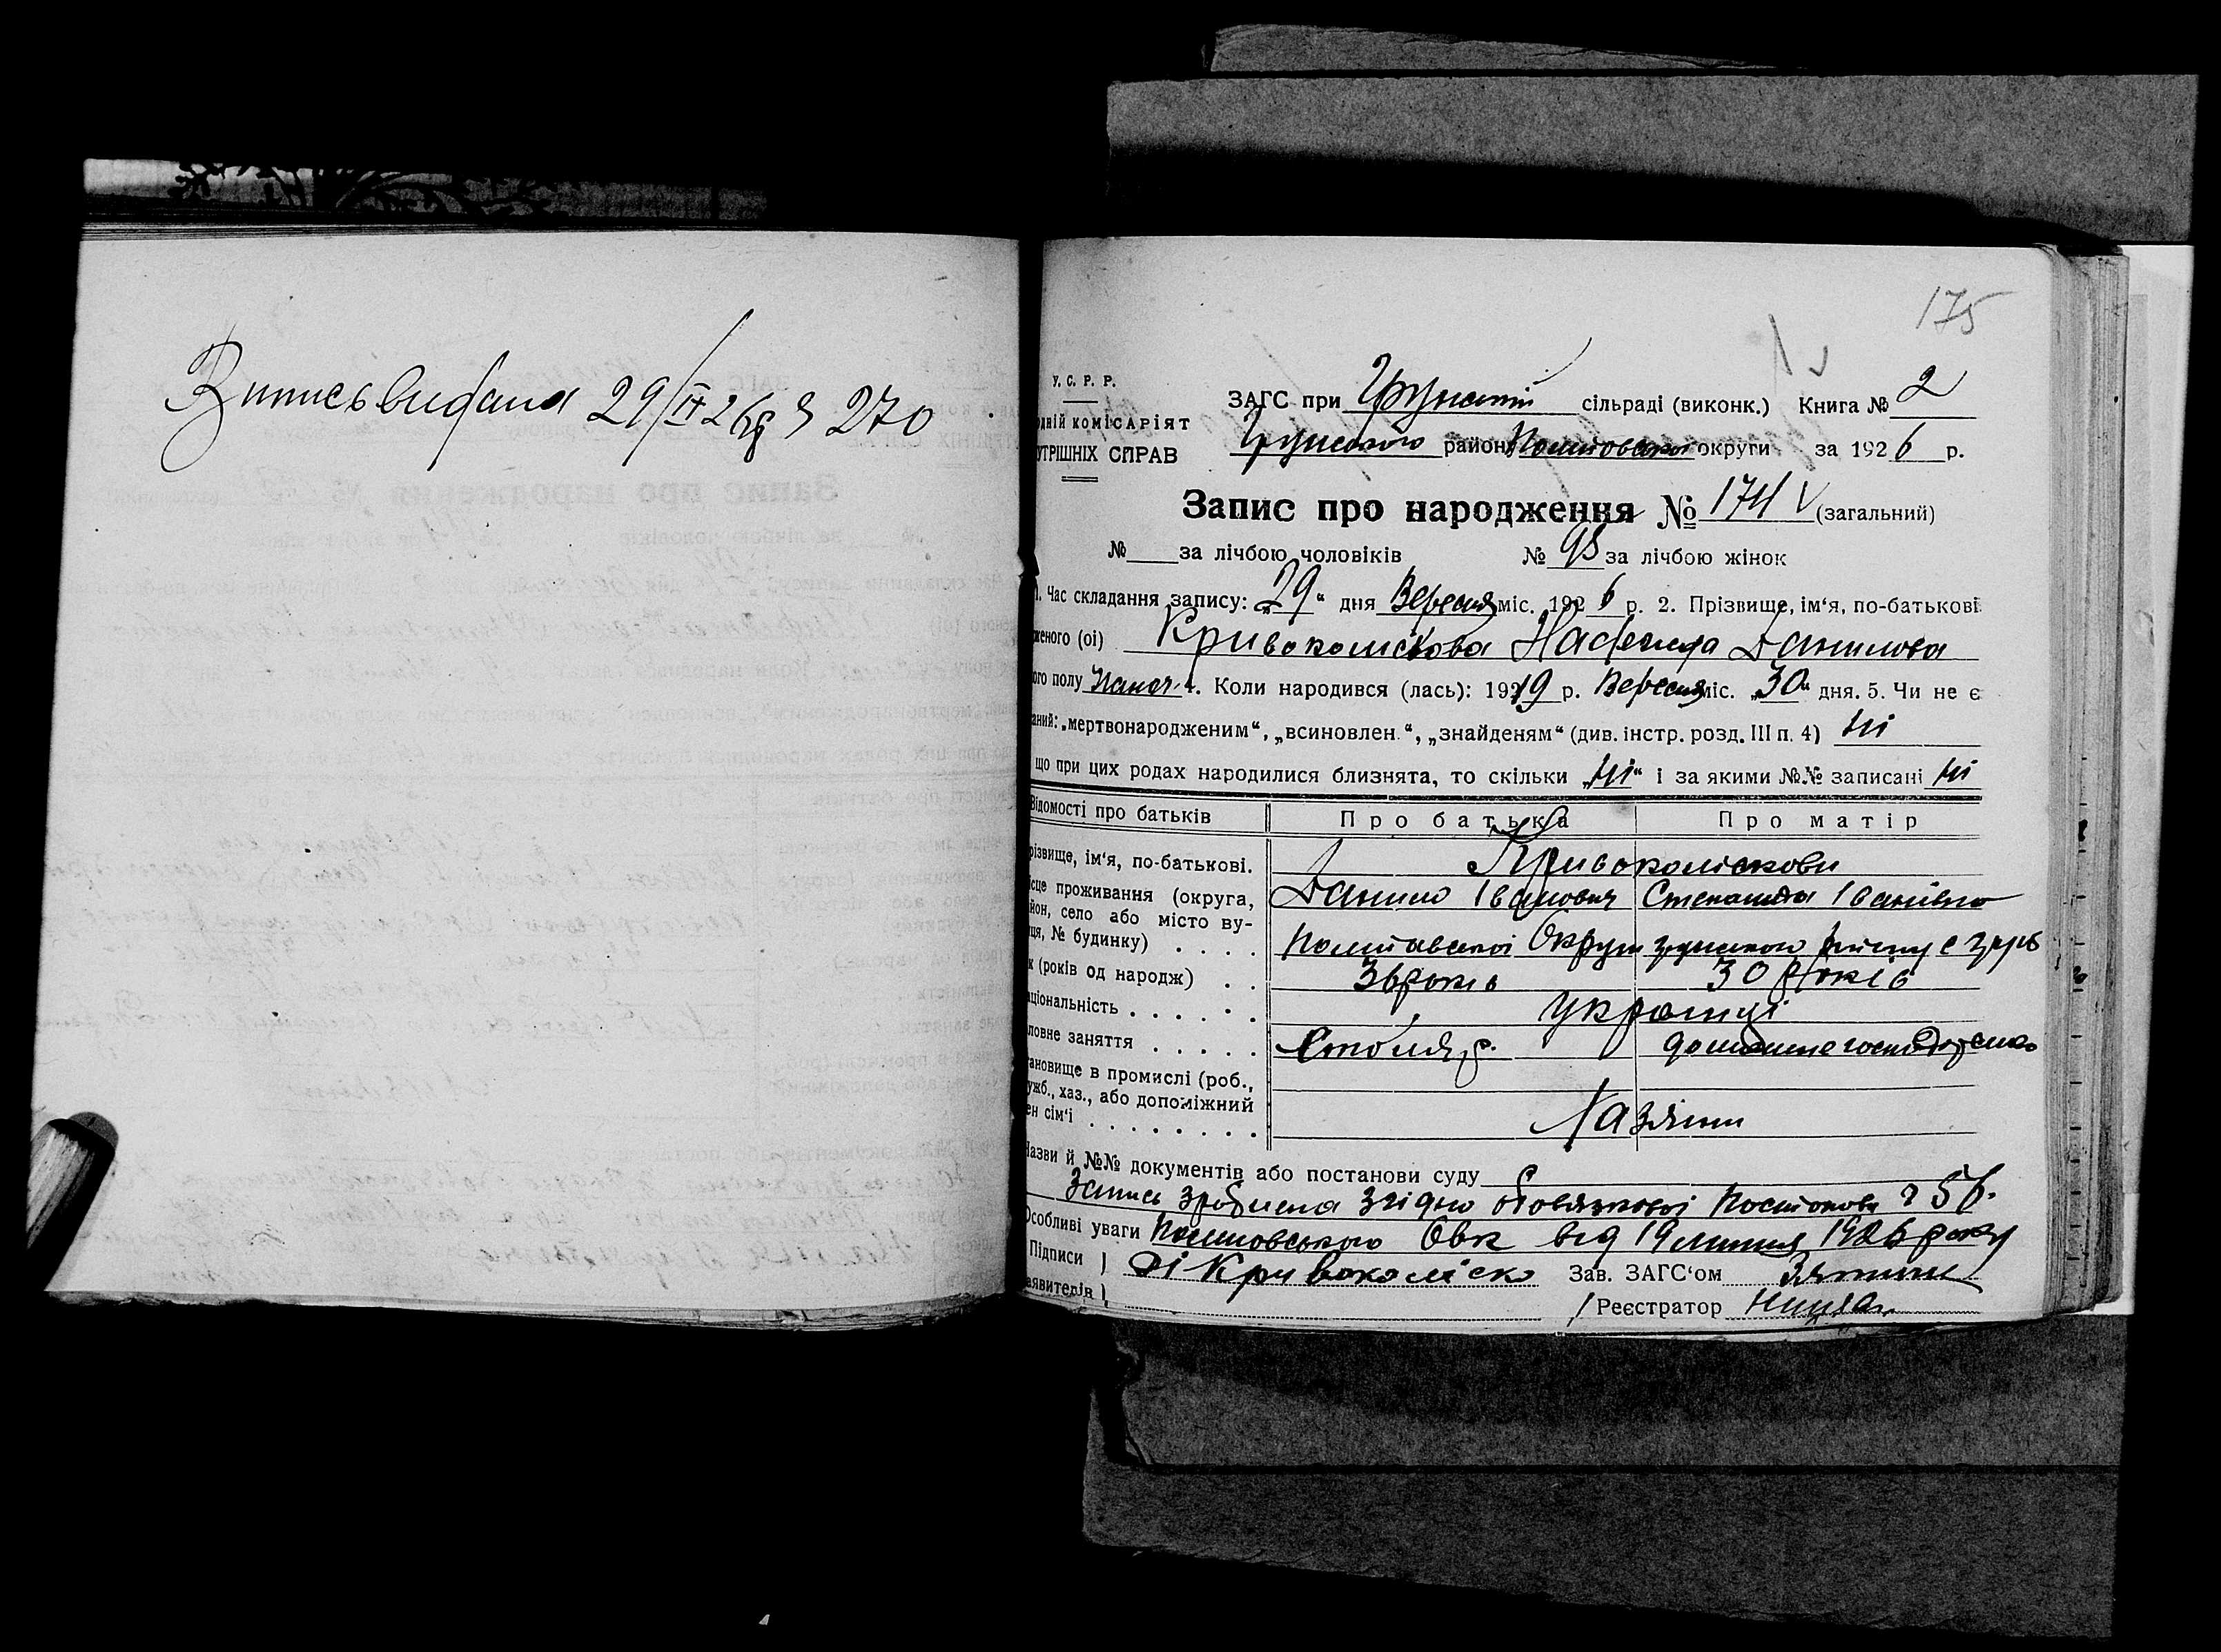 Запись видана 29/IX 26 р 270
175
У. С. Р. Р.
ЗАГС при Грунській сільраді (виконк.) Книга № 2
одній комісаріят
Грунського району Полтовської округи за 1926 р.
утрішніх справ
Запис про народження № 174 (загальний)
№ за лічбою чоловіків № 93 за лічбою жінок
1. Час складання запису: „29“ дня Вересня міс. 1926 р. 2. Прізвище, ім'я, по-батькові
женого (ої) Кривоколіскова Надежда Данилова
ого полу 4. Коли народився (лась): 1919 р. Вересня міс. „30“ дня. 5. Чи не є
аний: „мертвонародженим“, „всиновлен.“, „знайденям“ (див. інстр. розд. III п. 4) ні
що при цих родах народилися близнята, то скільки „ні“ і за якими №№ записані ні
Відомості про батьків Про батька Про матір
різвище, ім'я, по-батькові. Кривоколіскови
Данило Іванович Степанида Іванівна
ісце проживання (округа,
йон, село або місто ву-
ця, № будинку) . . . . Полтавської Округи грунського району с грунь
к (років од народж) . . 36 років 30 років
аціональність . . . . . . українці
ловне заняття . . . . . Столяр. домашнє господарство
ановище в промислі (роб.,
ужб., хаз., або допоміжний
ен сім'ї . . . . . . . . Хазяіни
Назви й №№ документів або постанови суду
Запись зроблена згідно обовязкової постонови 56.
Особливі уваги Полтовського Овк від 19 липня 1926 року
Підписи ) Ді Кривоколіско Зав. ЗАГС'ом
аявителів ) Реєстратор